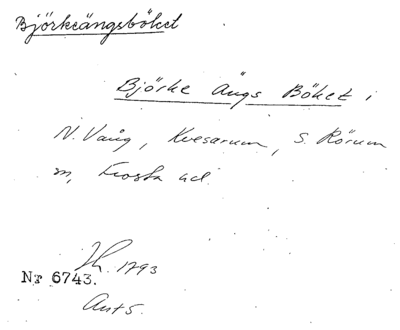 Björkeängsböket
Björke Ängs Böket i
N. Vång, Kvesarum, S. Rörum
m, Frosta hd.
1793
Nr 6743.
Akt 5.